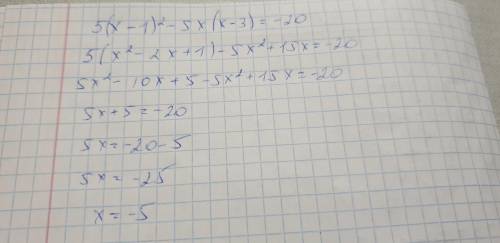 5(x-1)²-5x(x-3)=-20
5(x²-2x+1)-5x²+15x=-20
5x²-10x+5-5x²+15x=-20
5x+5=-20
5x=-20-5
5x=-25
x=-5